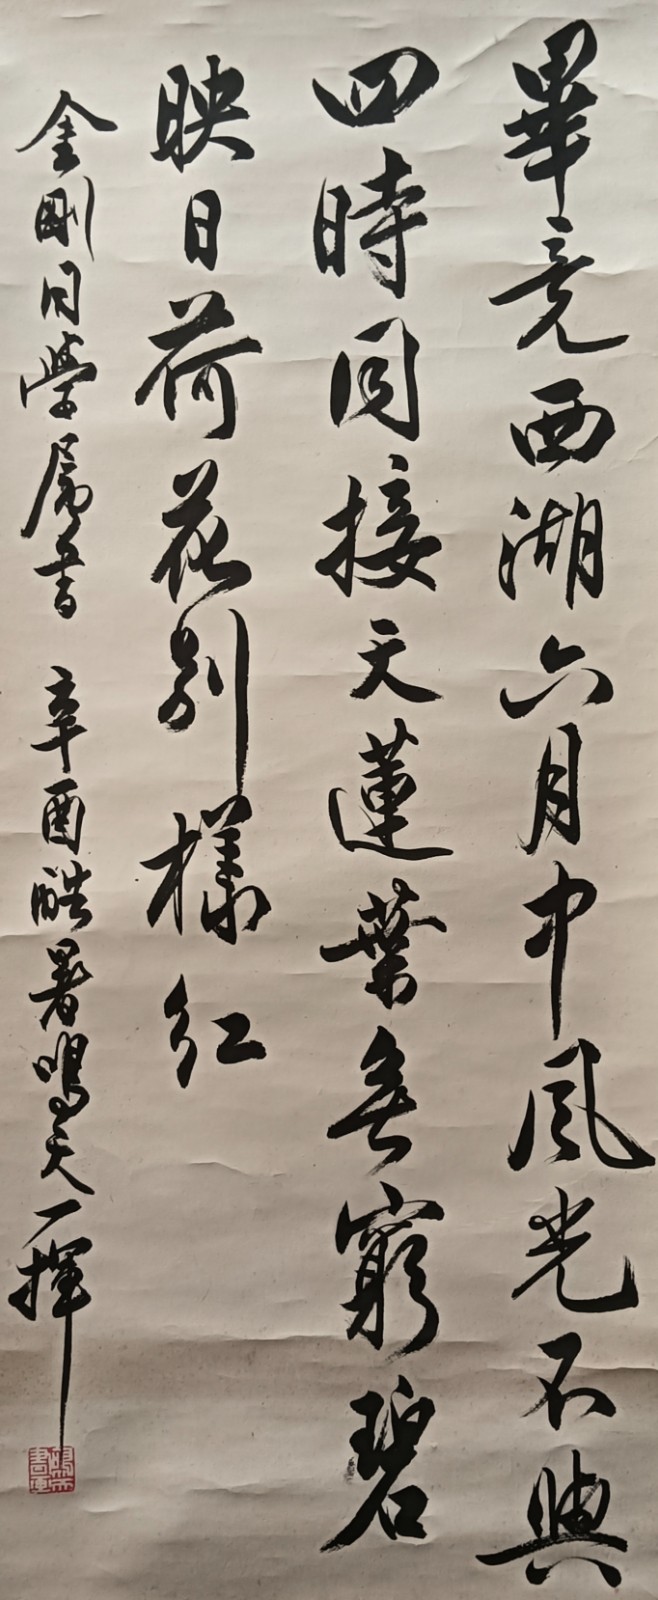 畢竟西湖六月中風光不與
四時同接天蓮葉無窮碧
映日荷花別樣紅
金剛同學屬書 辛酉酷暑鳴天一揮
鳴天書畫